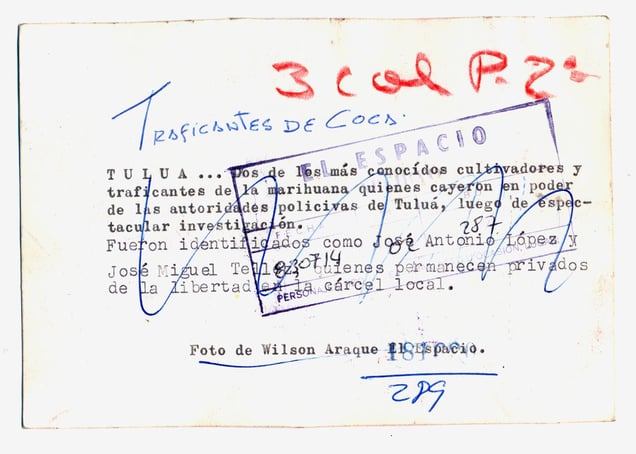 3 Col P. 2ª
TRAFICANTES DE COCA.
EL ESPACIO
TULUA ... Dos de los más conocídos cultivadores y
traficantes de la marihuana quienes cayeron en poder
de las autoridades policivas de Tuluá, luego de espec-
tacular investigación.
FECHA
287
Fueron identificados como José Antonio López y
02
830714
José Miguel Tellez, quienes permanecen privados
de la libertad en la cárcel local.
Foto de Wilson Araque El Espacio.
289